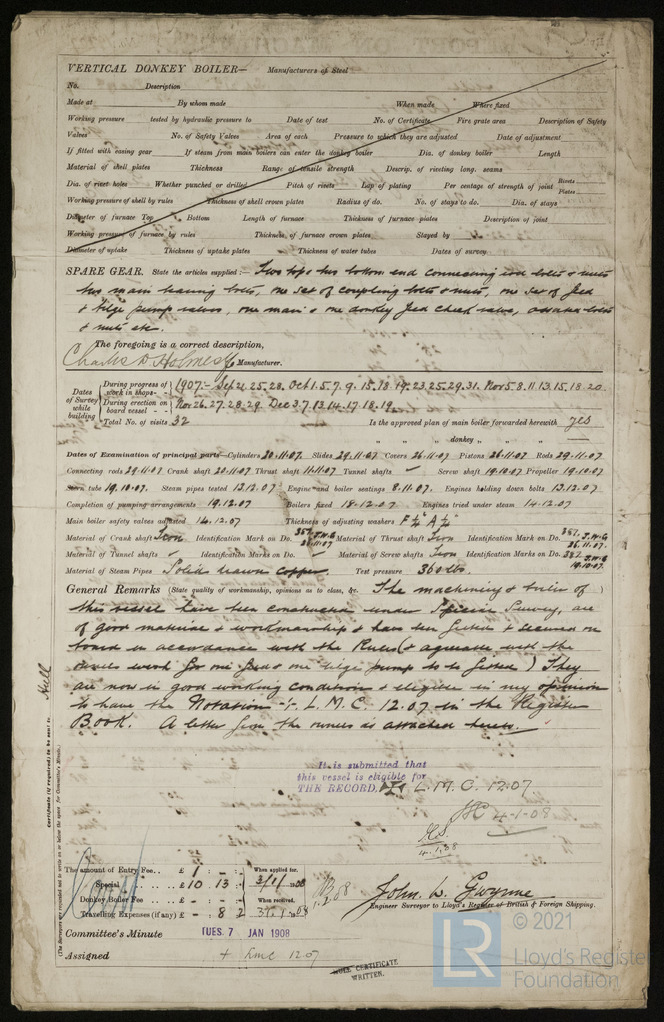 VERTICAL DONKEY BOILER— Manufacturers of Steel
No. Description
Made at By whom made When made Where fixed
Working pressure tested by hydraulic pressure to Date of test No. of Certificate Fire grate area Description of Safety
Valves No. of Safety Valves Area of each Pressure to which they are adjusted Date of adjustment
If fitted with easing gear If steam from main boilers can enter the donkey boiler Dia. of donkey boiler Length
Material of shell plates Thickness Range of tensile strength Descrip. of riveting long. seams
Dia. of rivet holes Whether punched or drilled Pitch of rivets Lap of plating Per centage of strength of joint Rivets Plates
Working pressure of shell by rules Thickness of shell crown plates Radius of do. No. of stays to do. Dia. of stays
Diameter of furnace Top Bottom Length of furnace Thickness of furnace plates Description of joint
Working pressure of furnace by rules Thickness of furnace crown plates Stayed by
Diameter of uptake Thickness of uptake plates Thickness of water tubes Dates of survey
SPARE GEAR. State the articles supplied:— Two top & two bottom end connecting rod bolts & nuts
two main bearing bolts, one set of coupling bolts & nuts, one set of feed
& bilge pump valves, one main & one donkey feed check valve, assorted bolts
& nuts etc.
The foregoing is a correct description,
Charles D Holmes & Co Manufacturer.
Dates of Survey while building
During progress of work in shops - - 1907:- Sep 21. 25. 28. Oct 1. 5. 7. 9. 15. 18. 19. 23. 25. 29. 31. Nov 5. 8. 11. 13. 15. 18. 20.
During erection on board vessel - - Nov 26. 27. 28. 29. Dec 3. 7. 13. 14. 17. 18. 19.
Total No. of visits 32 Is the approved plan of main boiler forwarded herewith yes
" " " donkey " " " —
Dates of Examination of principal parts—Cylinders 20.11.07 Slides 29.11.07 Covers 26.11.07 Pistons 26.11.07 Rods 29.11.07
Connecting rods 29.11.07 Crank shaft 20.11.07 Thrust shaft 11.11.07 Tunnel shafts ✓ Screw shaft 19.10.07 Propeller 19.10.07
Stern tube 19.10.07. Steam pipes tested 13.12.07 Engine and boiler seatings 8.11.07. Engines holding down bolts 13.12.07
Completion of pumping arrangements 19.12.07 Boilers fixed 18.12.07 Engines tried under steam 14.12.07
Main boiler safety valves adjusted 14.12.07 Thickness of adjusting washers F ¼ A ¼
Material of Crank shaft Iron Identification Mark on Do. 387. J.W.G 20.11.07. Material of Thrust shaft Iron Identification Mark on Do. 387. J.W.G 26.11.07.
Material of Tunnel shafts ✓ Identification Marks on Do. ✓ Material of Screw shafts Iron Identification Marks on Do. 382 J.W.G 19.10.07.
Material of Steam Pipes Solid drawn copper. Test pressure 360 lbs.
General Remarks (State quality of workmanship, opinions as to class, &c. The machinery & boiler of
this vessel have been constructed under Special Survey, are
of good material & workmanship & have been fitted & secured on
board in accordance with the Rules (& agreeable with the
owners wish for one feed & one bilge pump to be fitted) They
are now in good working condition & eligible in my opinion
to have the Notation + L.M.C. 12.07 in the Register
Book. A letter from the owners is attached hereto.
It is submitted that
this vessel is eligible for
THE RECORD. + L.M.C. 12.07
4-1-08
4.1.08
Certificate (if required) to be sent to Hull
(The Surveyors are requested not to write on or below the space for Committee's Minute.)
The amount of Entry Fee .. £ 1 : - : - When applied for,
Special .. £ 10 : 13 : 3/1/1908
Donkey Boiler Fee .. £ : : When received,
Travelling Expenses (if any) £ - : 8 : 2 1908
John W. Gwynne
Engineer Surveyor to Lloyd's Register of British & Foreign Shipping.
Committee's Minute TUES. 7 JAN 1908
Assigned + Lmc 12.07
CERTIFICATE
WRITTEN.
LR
© 2021
Lloyd's Register
Foundation